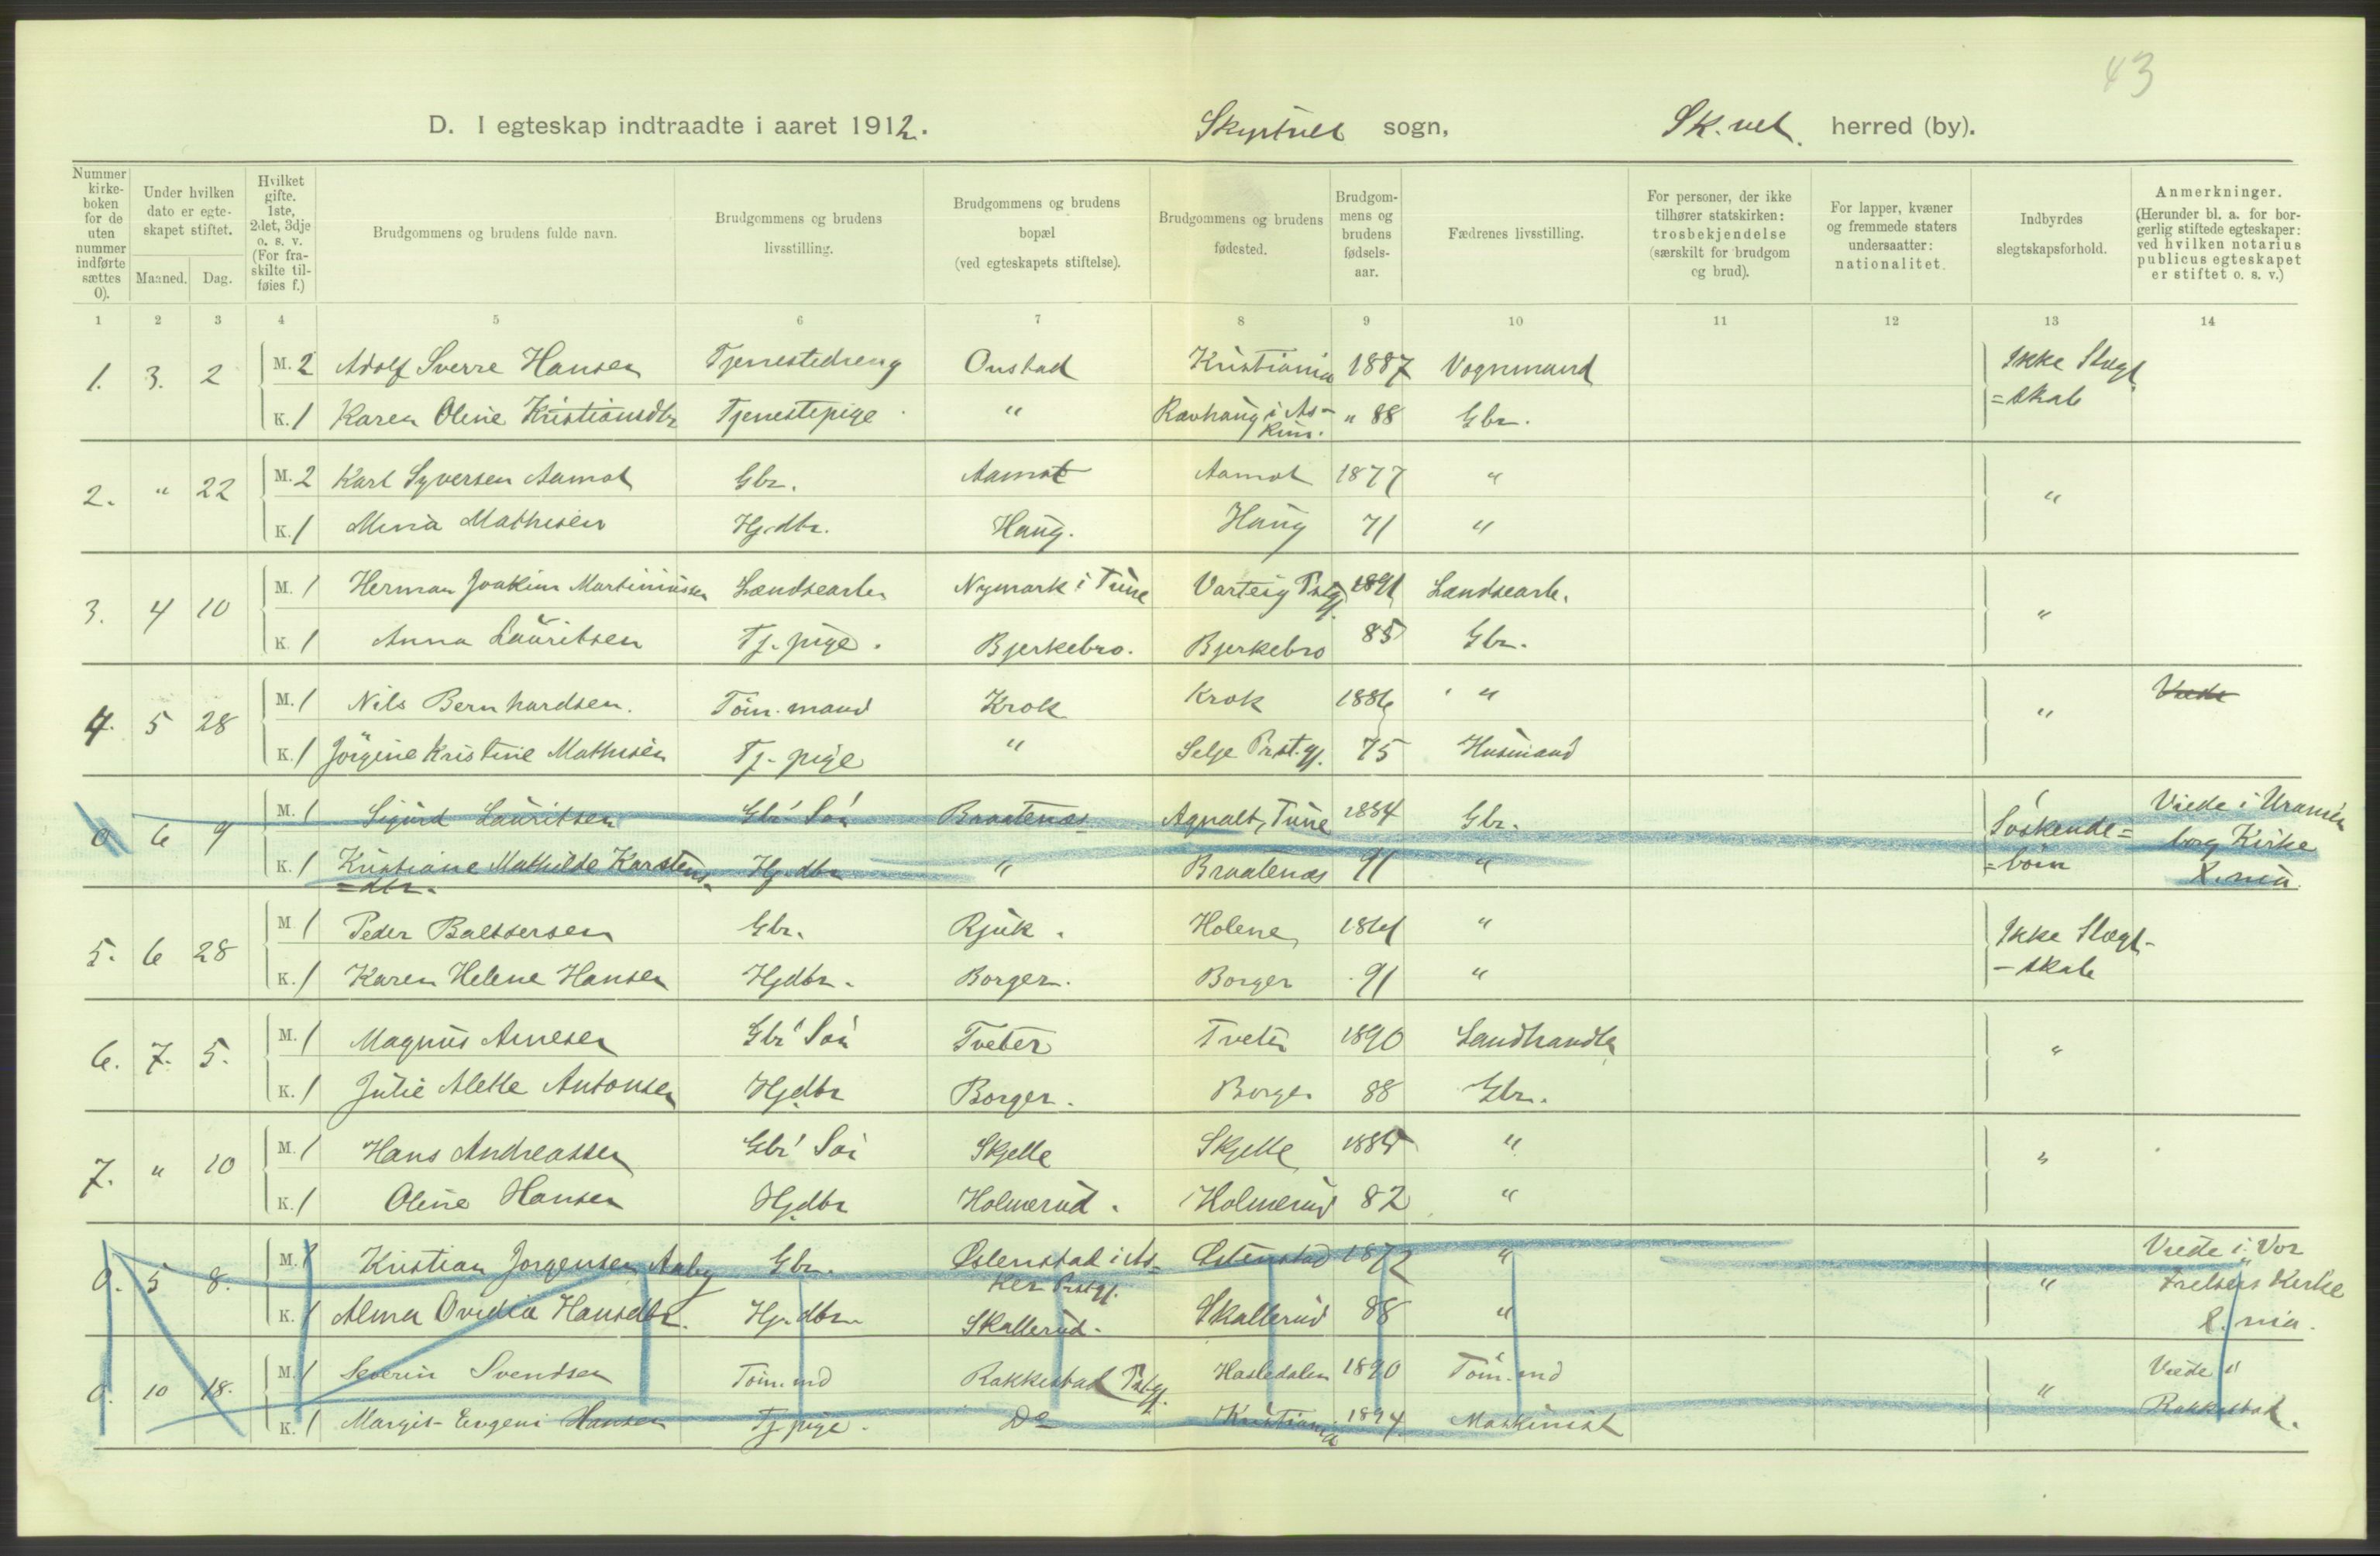 43
D. I egteskap indtraadte i aaret 1912. Skiptvet sogn, Sk.vet. herred (by).
Nummer kirkeboken for de uten nummer indførte sættes 0).
Under hvilken dato er egteskapet stiftet.
Maaned. Dag.
Hvilket gifte. 1ste, 2det, 3dje o. s. v. (For fraskilte tilføies f.)
Brudgommens og brudens fulde navn.
Brudgommens og brudens livsstilling.
Brudgommens og brudens bopæl (ved egteskapets stiftelse).
Brudgommens og brudens fødested.
Brudgommens og brudens fødselsaar.
Fædrenes livsstilling.
For personer, der ikke tilhører statskirken: trosbekjendelse (særskilt for brudgom og brud).
For lapper, kvæner og fremmede staters undersaatter: nationalitet.
Indbyrdes slegtskapsforhold.
Anmerkninger. (Herunder bl. a. for borgerlig stiftede egteskaper: ved hvilken notarius publicus egteskapet er stiftet o. s. v.)
1 2 3 4 5 6 7 8 9 10 11 12 13 14
1. 3. 2 M. 2 Adolf Sverre Hansen Tjenestedreng Onstad Kristiania 1887 Vognmand Ikke Slegt
K. 1 Karen Oline Kristiansdtr Tjenestepige " Ravhaug i As- " 88 Gbr. =skab
kim.
2. " 22 M. 2 Karl Syversen Aamot Gbr. Aamot Aamot 1877 " "
K. 1 Mina Mathisen Hj.dtr. Haug. Haug 71 "
3. 4 10 M. 1 Herman Joakim Martiniussen Lændsearb. Nymark i Tune Varteig Prstgj. 1891 Lændsearb. "
K. 1 Anna Lauritsen Tj. pige. Bjerkebro. Bjerkebro 85 Gbr.
4. 5 28 M. 1 Nils Bernhardsen. Töm.mand Krok Krok 1886 " " Viede
K. 1 Jörgine Kristine Mathisen Tj. pige " Selje Prst.gj. 75 Husmand
0 6 9 M. 1 Sigurd Lauritsen Gbr' Sön Braatenæs Agnalt, Tune 1884 Gbr. Söskende= Viede i Uranien
K. 1 Kristiane Mathilde Karstens- Hj.dtr " Braatenæs 91 " =börn borg Kirke
=dtr. K.nia.
5. 6 28 M. 1 Peder Baltsersen Gbr. Rjuk. Holene 1861 " Ikke Slegt-
K. 1 Karen Helene Hansen Hjdtr. Borger. Borger 91 " -skab
6. 7. 5. M. 1 Magnus Arnesen Gbr' Sön Tveter Tveter 1890 Landhandler "
K. 1 Julie Alette Antonsen Hj.dtr Borger. Borger 88 Gbr.
7. " 10 M. 1 Hans Andreassen Gbr' Sön Skjelle Skjelle 1885 " "
K. 1 Oline Hansen Hj.dtr Holmerud. Holmerud 82 "
0. 5 8. M. 1 Kristian Jorgensen Aaby Gbr. Østenstad i As- Østenstad 1872 " " Viede i Vor
ker Prstgj. Frelsers Kirke
K. 1 Alma Ovidia Hansdtr. Hj. dtr. Skallerud. Skallerud 88 " K.nia.
0. 10 18. M. 1 Severin Svendsen Töm.md Rakkestad Prstgj. Hasledalen 1890 Töm.md " Viede i
K. 1 Margit Eugeni Hansen Tj.pige. Do Kristiania 1894. Maskinist Rakkestad.